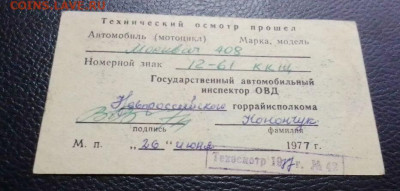 coins.su
Технический осмотр прошел
Автомобиль (мотоцикл) Марка, модель
Москвич 408
Номерной знак 12-61 ккщ
Государственный автомобильный
инспектор ОВД
Новороссийского горрайисполкома
Конончук
подпись фамилия
М. п. „26" июня 1977 г.
Техосмотр 1977 г. № 42